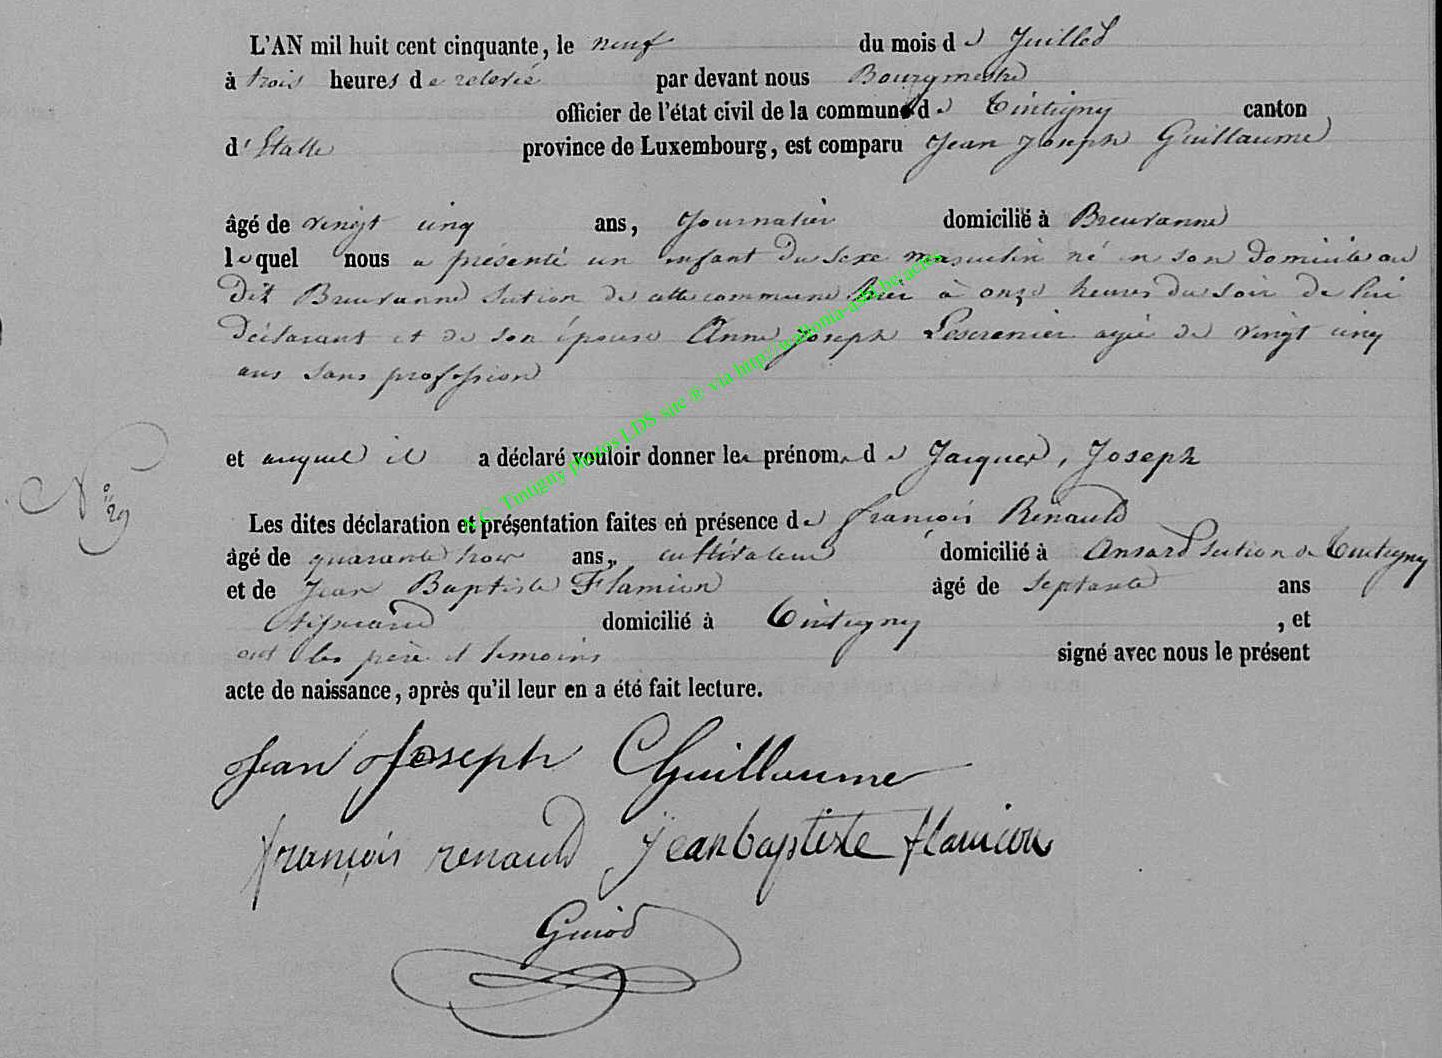 L'AN mil huit cent cinquante, le neuf du mois de Juillet
à trois heures de relevée par devant nous Bourgmestre
officier de l'état civil de la commune de Tintigny canton
d'Etalle province de Luxembourg, est comparu Jean Joseph Guillaume
âgé de vingt cinq ans, Journalier domicilié à Breuvanne
lequel nous a présenté un enfant du sexe masculin né en son domicile au
dit Breuvanne section de cette commune hier à onze heures du soir de lui
déclarant et de son épouse Anne Joseph Lescrenier agée de vingt cinq
ans sans profession
et auquel il a déclaré vouloir donner les prénoms de Jacques, Joseph
N° 29
Les dites déclaration et présentation faites en présence de françois Renauld
âgé de quarante trois ans, cultivateur domicilié à Ansart section de Tintigny
et de Jean Baptiste Flamion âgé de septante ans
domicilié à Tintigny , et
ont les père et temoins signé avec nous le présent
acte de naissance, après qu'il leur en a été fait lecture.
Jean Joseph Guillaume
françois renauld jeanbaptiste flamion
A.C. Tintigny photos LDS site ® via http://wallonia-asbl.be/actes